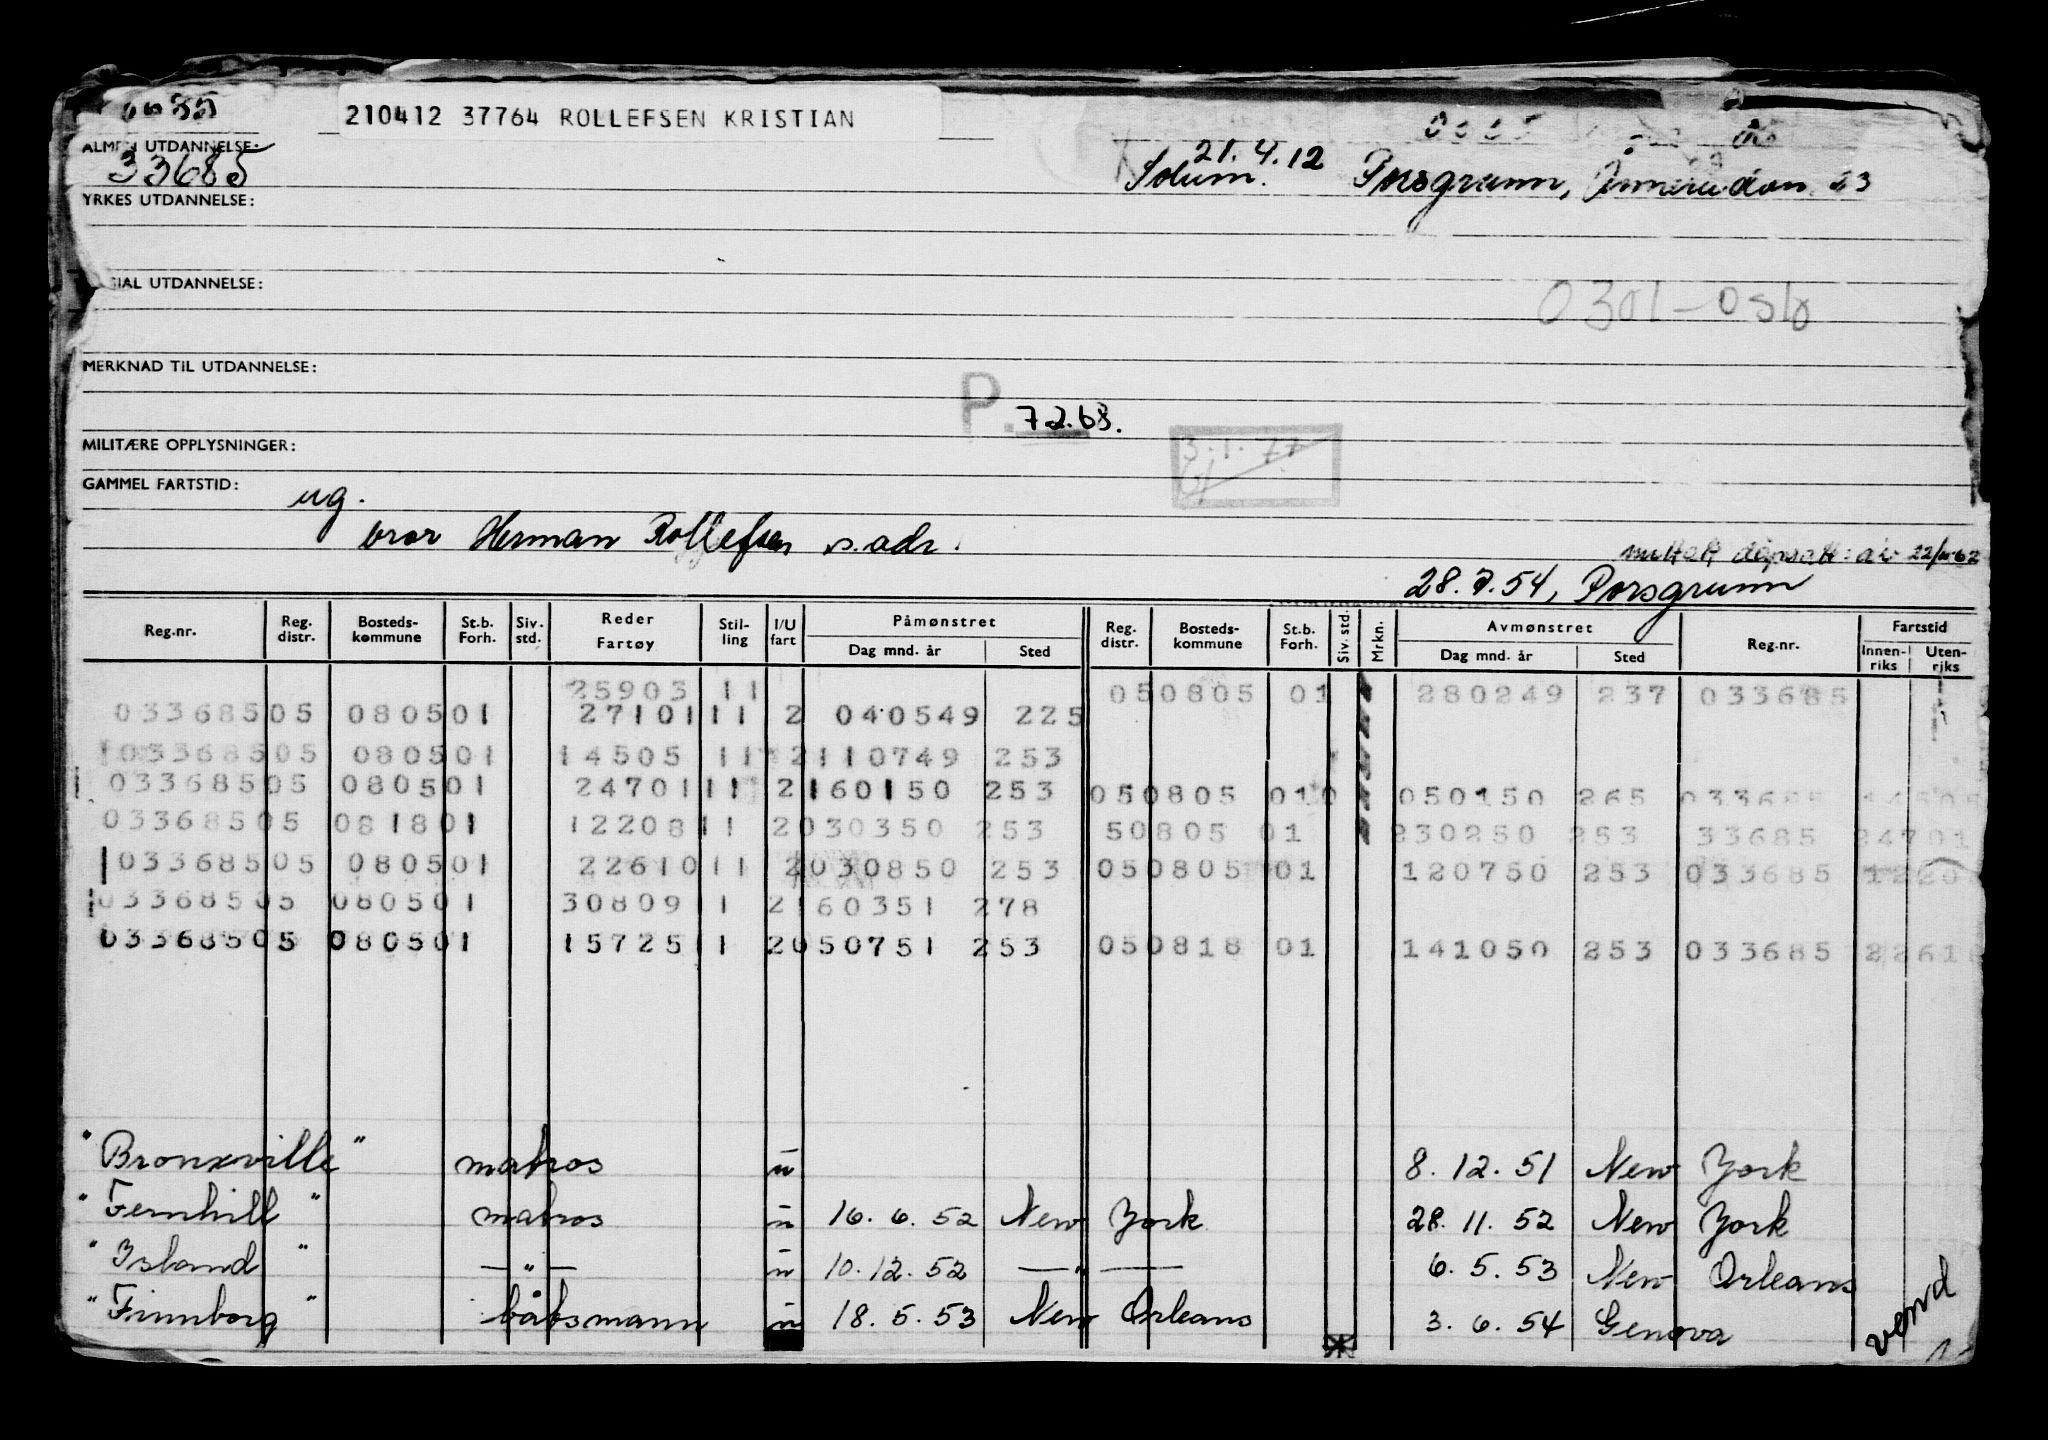 210412 37764 ROLLEFSEN KRISTIAN
ALMEN UTDANNELSE:
33685
21.4.12
Solum. Porsgrunn, 23
YRKES UTDANNELSE:
SIAL UTDANNELSE:
0301-Oslo
MERKNAD TIL UTDANNELSE:
P. 7.2.63.
MILITÆRE OPPLYSNINGER:
3.1.77
GAMMEL FARTSTID: ug.
bror Herman Rollefsen s.adr.
mottatt dåpsatt: av 22/ 62
28.7.54, Porsgrunn
Reg.nr. Reg. distr. Bosteds-kommune St.b. Forh. Siv. std. Reder Fartøy Stil-ling I/U fart Påmønstret Dag mnd. år Sted Reg. distr. Bosteds-kommune St.b. Forh. Siv. std. Mrkn. Avmønstret Dag mnd. år Sted Reg.nr. Fartstid Innen-riks Uten-riks
25903 11 050805 01 280249 237 033685
033685 05 0805 01 27101 11 2 040549 225
033685 05 0805 01 14505 11 2 110749 253
033685 05 0805 01 24701 11 2 160150 253 050805 010 050150 265 033685 14505
033685 05 0818 01 12208 11 2 030350 253 50805 01 230250 253 33685 24701
033685 05 0805 01 22610 11 2 030850 253 050805 01 120750 253 033685 1220
033685 05 0805 01 30809 11 2 160351 278
033685 05 0805 01 15725 11 2 050751 253 050818 01 141050 253 033685 2261
"Bronxville" matros u 8.12.51 New York
"Fernhill" matros u 16.6.52 New York 28.11.52 New York
"Island" —"— u 10.12.52 —"— 6.5.53 New Orleans
"Finnborg" båtsmann u 18.5.53 New Orleans 3.6.54 Genova
vend